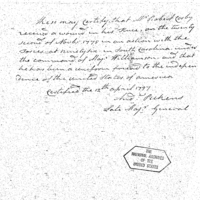 These may Certify, that Mr Robert Caxby
receiv'd a wound in his Knee, on the twenty
of March 1778 in an action with the
at Ninetysix in South Carolina under
the command of Majr Williamson and that
he has been a uniform friend to the indepen
dence of the united states of america
Certified the 12th april 1797
And. Pickens
Late Majr General
THE
NATIONAL ARCHIVES
OF THE
UNITED STATES